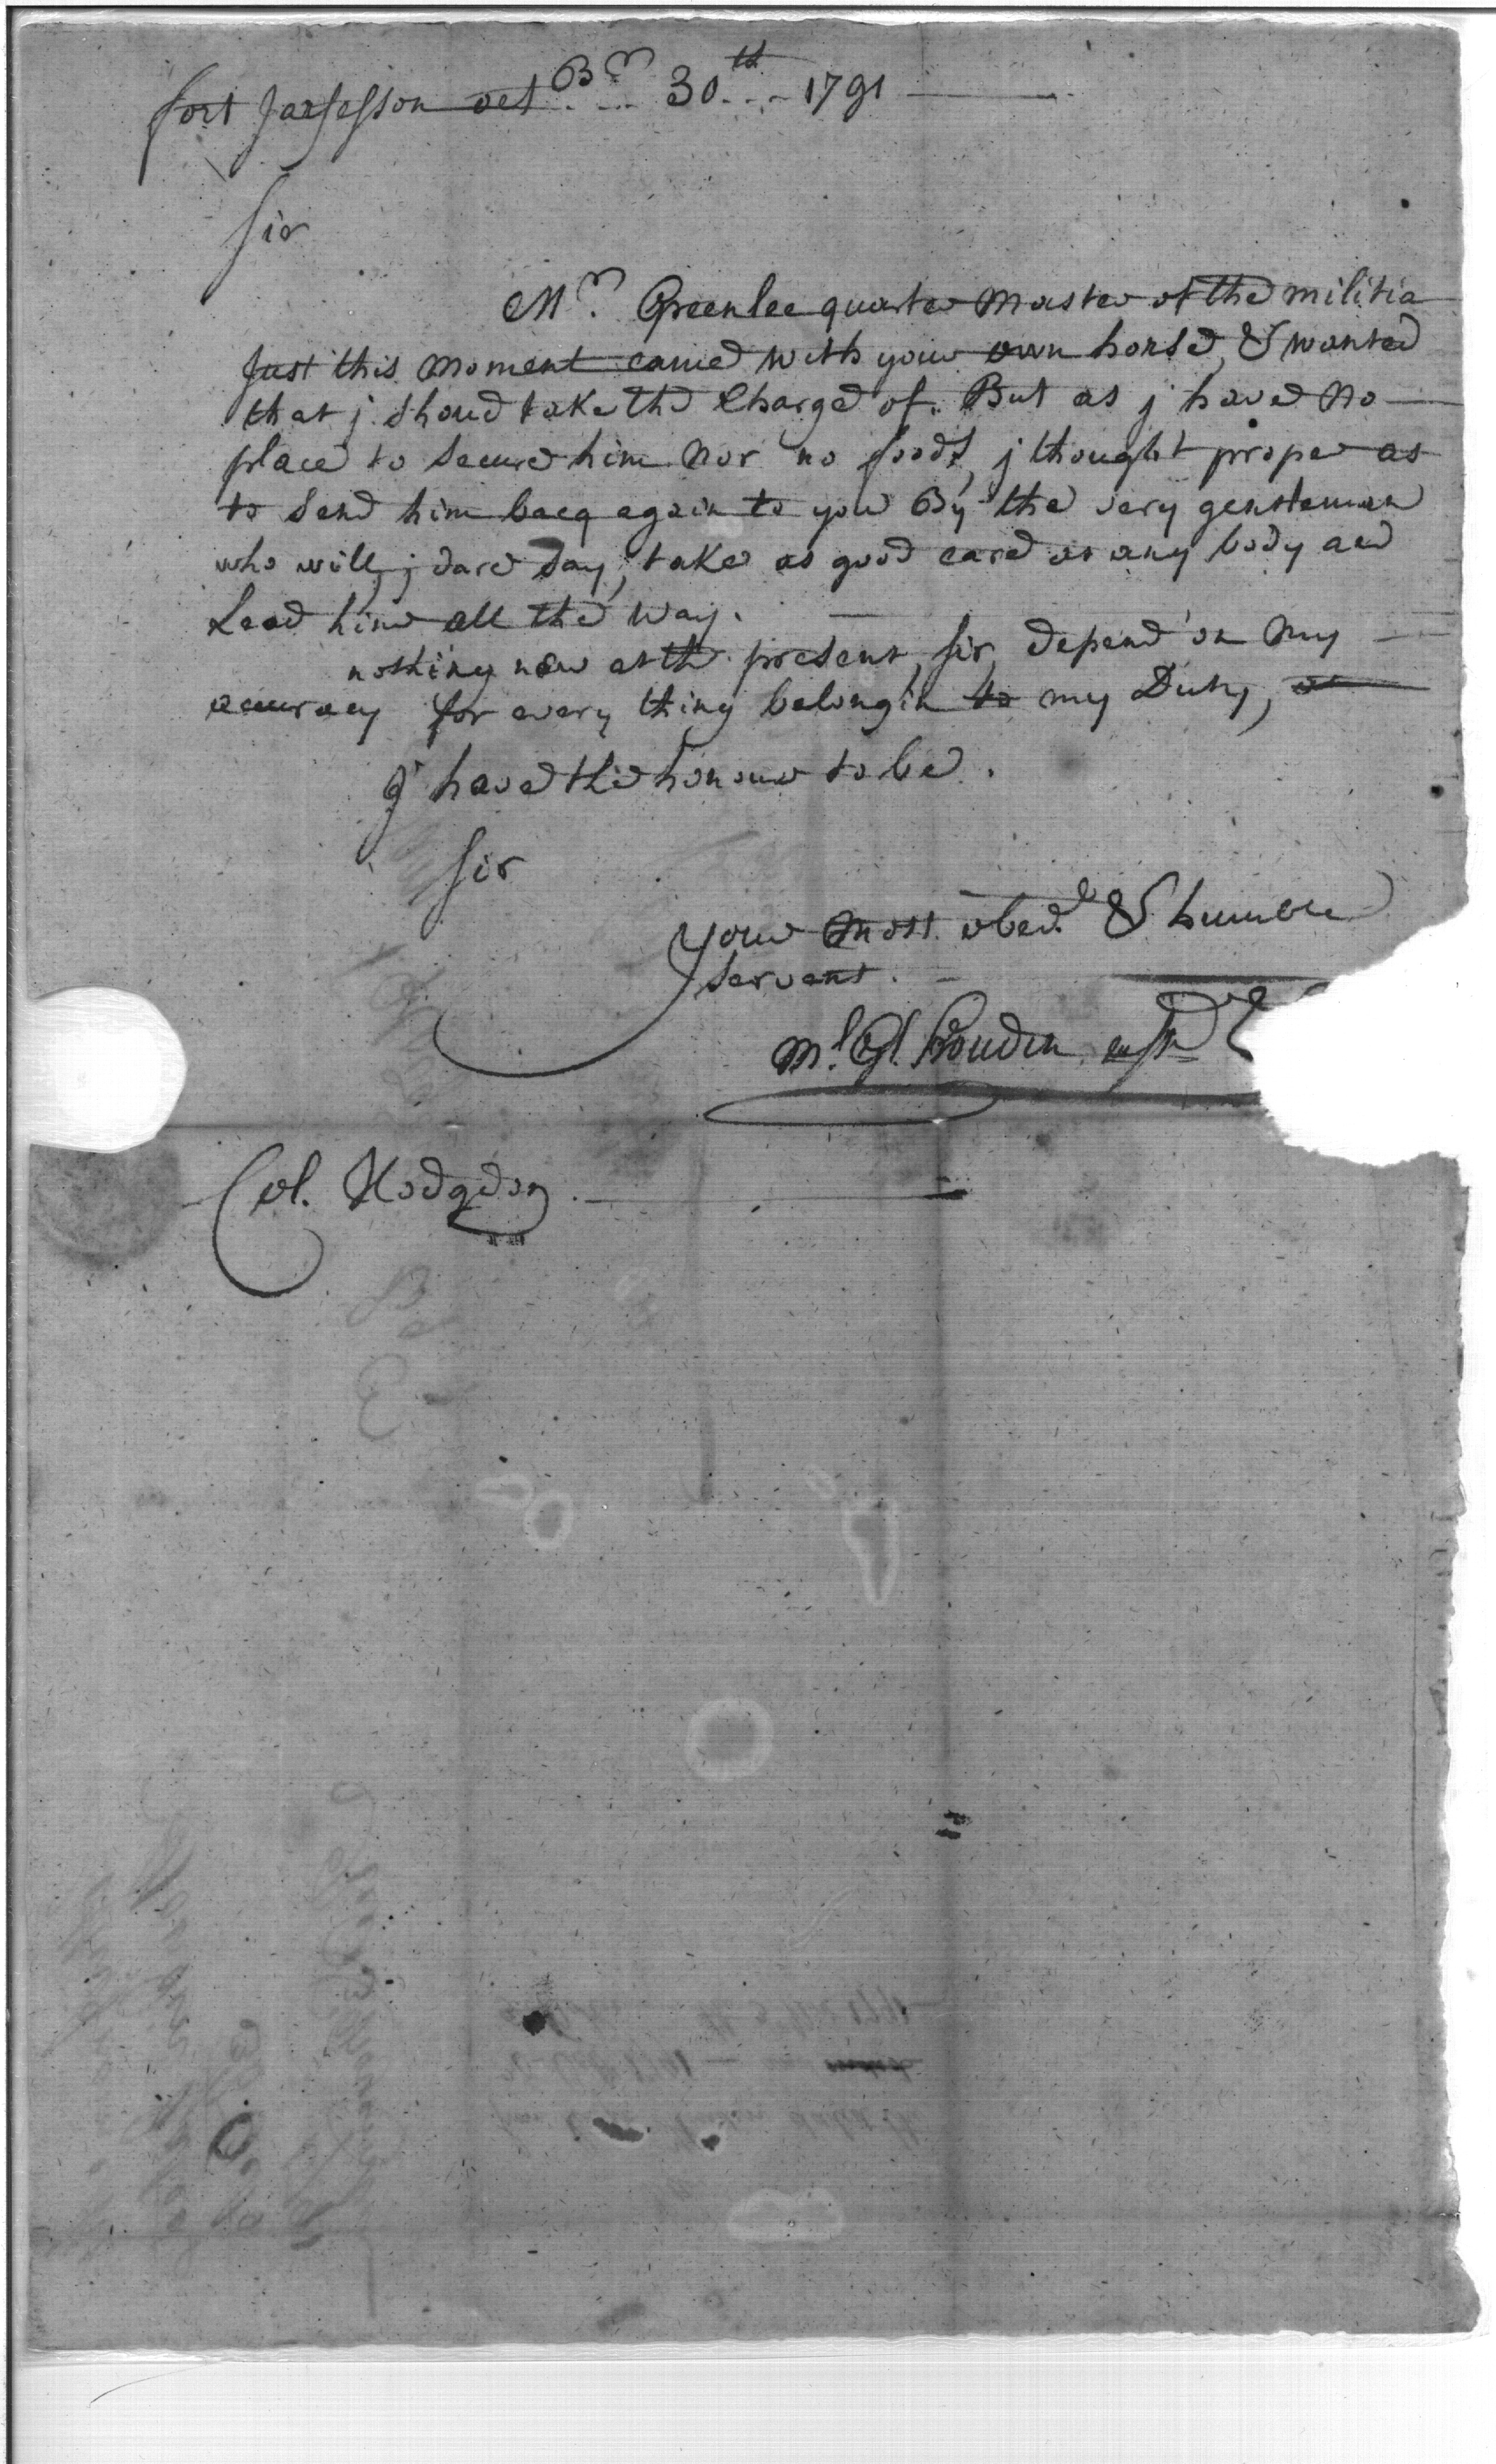 fort Jarfesson oct Br 30th 1791
Sir
Mr. Greenlee quarter Master of the militia
Just this moment came with your own horse, & wanted
that j shoud take the Charge of. But as j have no
place to secure him nor no food, j thought proper as
to send him bacq again to you By the very gentleman
who will, j dare say, take as good care as any body and
Lead him all the way.
nothing new at the present, sir, depend on my
accuracy for every thing belongin to my Duty,
J have the honour to be.
Sir
your most obed. & humble
servent.
Col. Hodgdon